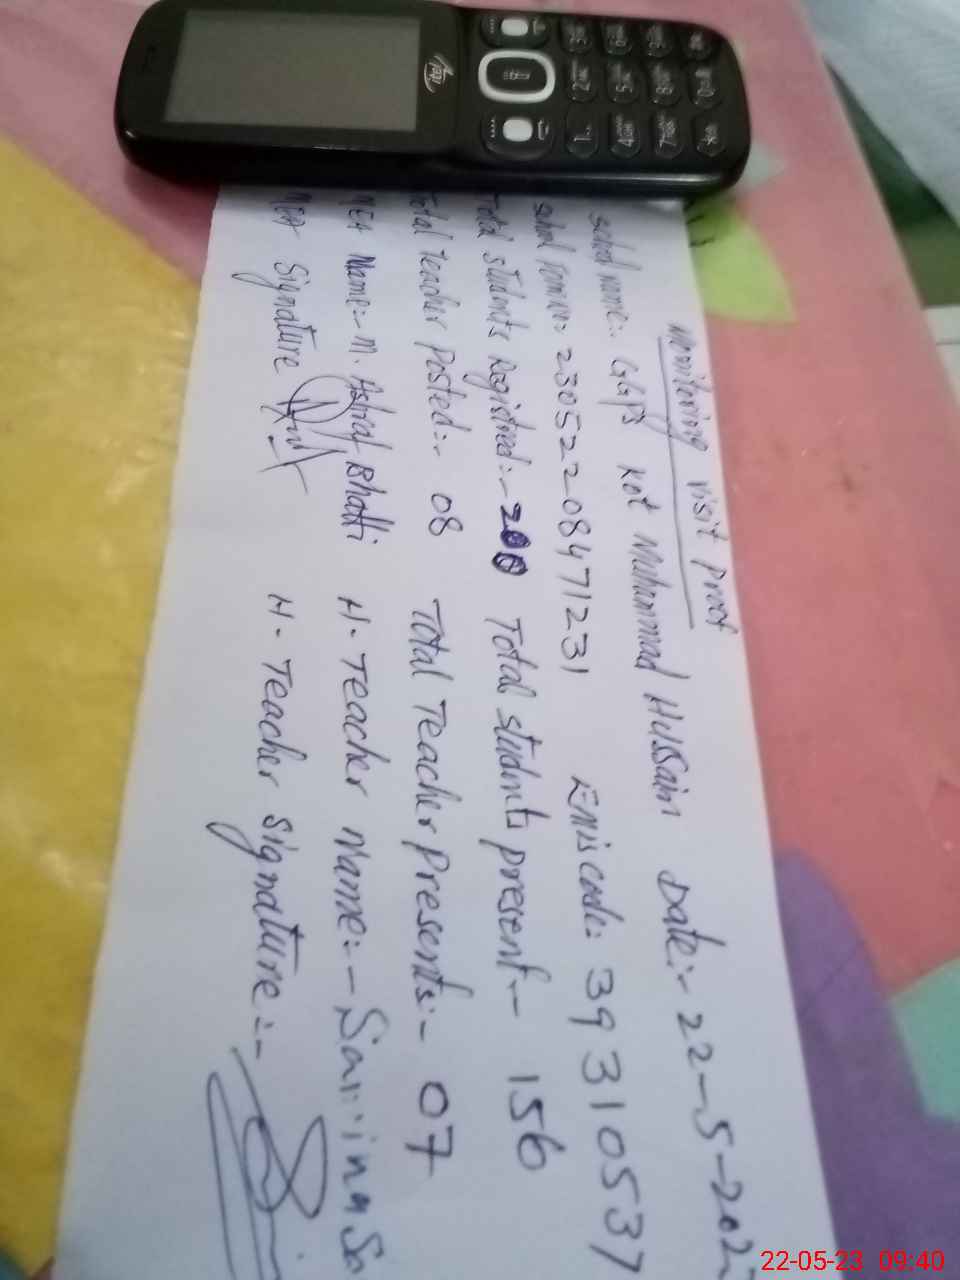 monitoring visit Proof
School name:- GGPS Kot Muhammad Hussain Date:- 22-5-202
23052208471231 Emis code: 39310537
Total students Registred:- 200 Total students present:- 156
Total teacher Posted:- 08 Total Teacher Presents:- 07
MEA Name:- M. Ashraf Bhatti H. Teacher Name:-
MEA Signature H. Teacher Signature:-
itel
22-05-23 09:40